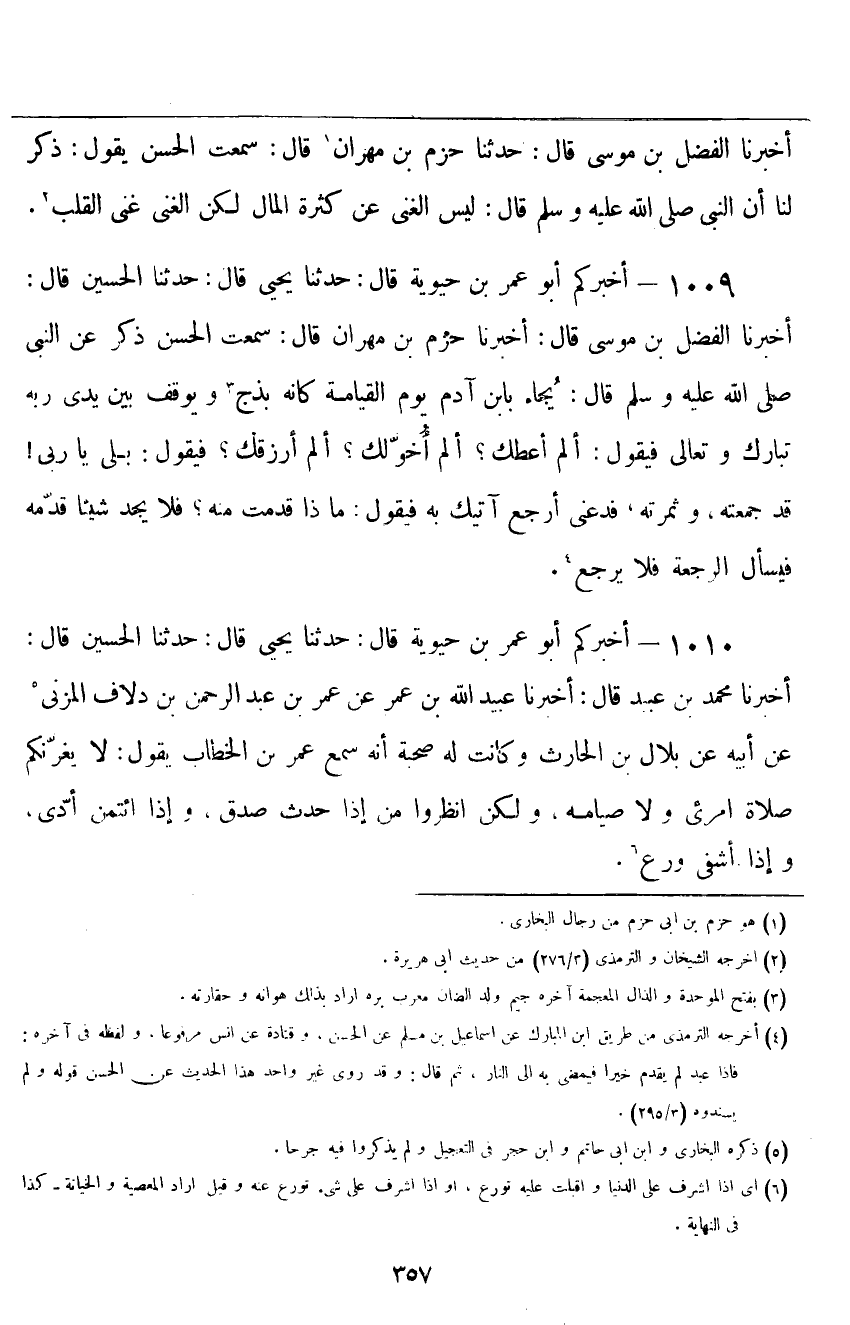 أخبرنا الفضل بن موسى قال : حدثنا حزم بن مهران١ قال : سمعت الحسن يقول : ذكر
لنا أن النبي صلى الله عليه و سلم قال : ليس الغنى عن كثرة المال لكن الغنى غنى القلب٢ .
١٠٠٩ – أخبركم أبو عمر بن حيوية قال : حدثنا يحيى قال : حدثنا الحسين قال :
أخبرنا الفضل بن موسى قال : أخبرنا حزم بن مهران قال : سمعت الحسن ذكر عن النبي
صلى الله عليه و سلم قال : يُجاء بابن آدم يوم القيامة كانه بذج٣ و يوقف بين يدى ربه
تبارك و تعالى فيقول : ألم أعطك ؟ ألم أُخوّلك ؟ ألم أرزقك ؟ فيقول : بلى يا ربى !
قد جمعته ، و ثمرته ، فدعنى أرجع آتيك به فيقول : ما ذا قدمت منه ؟ فلا يجد شيئا قدّمه
فيسأل الرجعة فلا يرجع٤ .
١٠١٠ – أخبركم أبو عمر بن حيوية قال : حدثنا يحيى قال : حدثنا الحسين قال :
أخبرنا محمد بن عبيد قال : أخبرنا عبيد الله بن عمر عن عمر بن عبد الرحمن بن دلاف المزنى٥
عن أبيه عن بلال بن الحارث وكانت له صحبة أنه سمع عمر بن الخطاب يقول : لا يغرّنكم
صلاة امرئ و لا صيامه ، و لكن انظروا من إذا حدث صدق ، و إذا ائتمن أدّى ،
و إذا أشفى ورع٦ .
(١) هو حزم بن ابى حزم من رجال البخارى .
(٢) اخرجه الشيخان و الترمذى (٢٧٦/٣) من حديث ابى هريرة .
(٣) بفتح الموحدة و الذال المعجمة آخره جيم ولد الضان معرب بره اراد بذالك هوانه و حقارته .
(٤) أخرجه الترمذى من طريق ابن المبارك عن اسماعيل بن مسلم عن الحسن ، و قتادة عن انس مرفوعا . و لفظه فى آخره :
فاذا عبد لم يقدم خيرا فيمضى به الى النار ، ثم قال : و قد روى غير واحد هذا الحديث عن الحسن قوله و لم
يسندوه (٢٩٥/٣) .
(٥) ذكره البخارى و ابن ابى حاتم و ابن حجر فى التعجيل و لم يذكروا فيه جرحا .
(٦) اى اذا اشرف على الدنيا و اقبلت عليه تورع ، او اذا اشرف على شىء تورع عنه و قيل اراد المعصية و الخيانة ـ كذا
فى النهاية .
٣٥٧